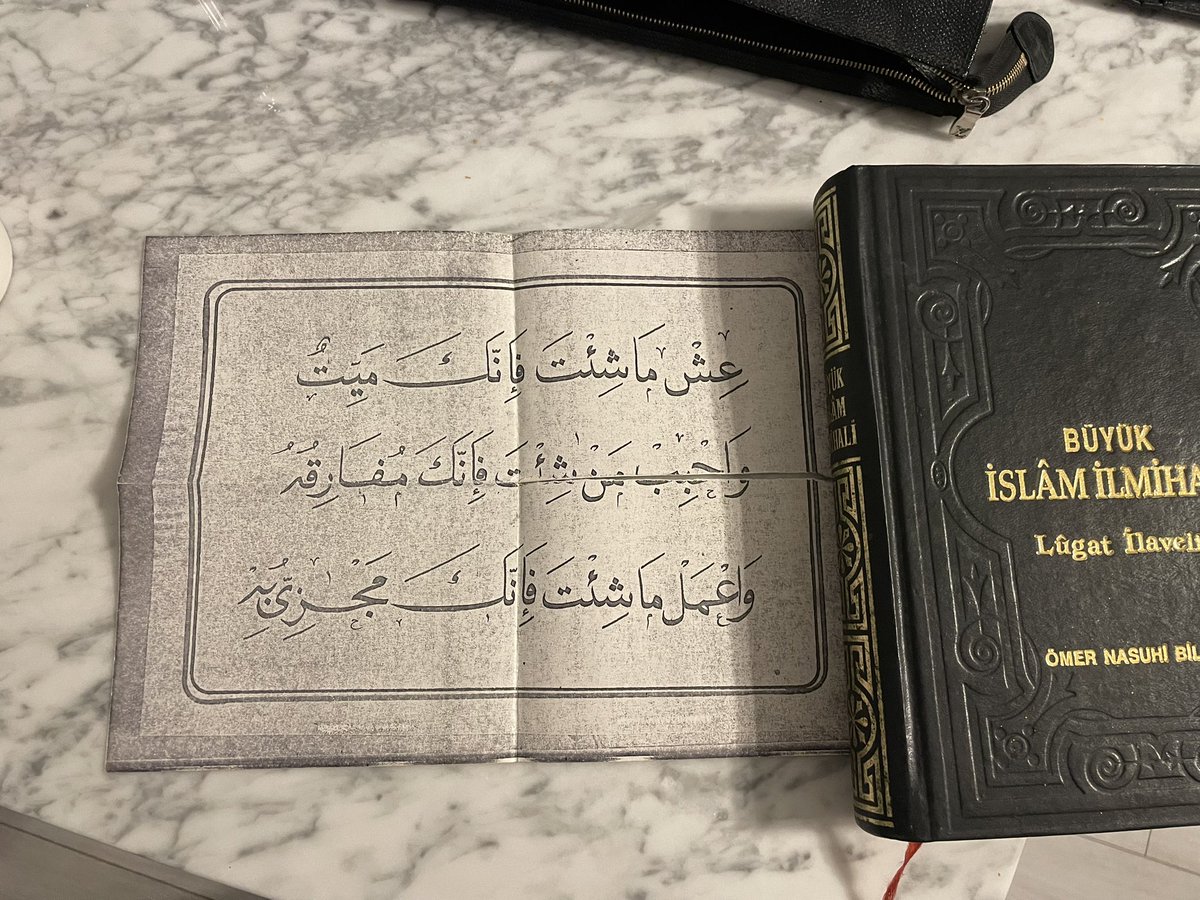 عِشْ مَا شِئْتَ فَإِنَّكَ مَيِّتٌ
وَاحْبِبْ مَنْ شِئْتَ فَإِنَّكَ مُفَارِقُهُ
وَاعْمَلْ مَا شِئْتَ فَإِنَّكَ مَجْزِىٌّ بِهِ
BÜYÜK
İSLÂM İLMİHA
Lûgat İlaveli
ÖMER NASUHİ BİL